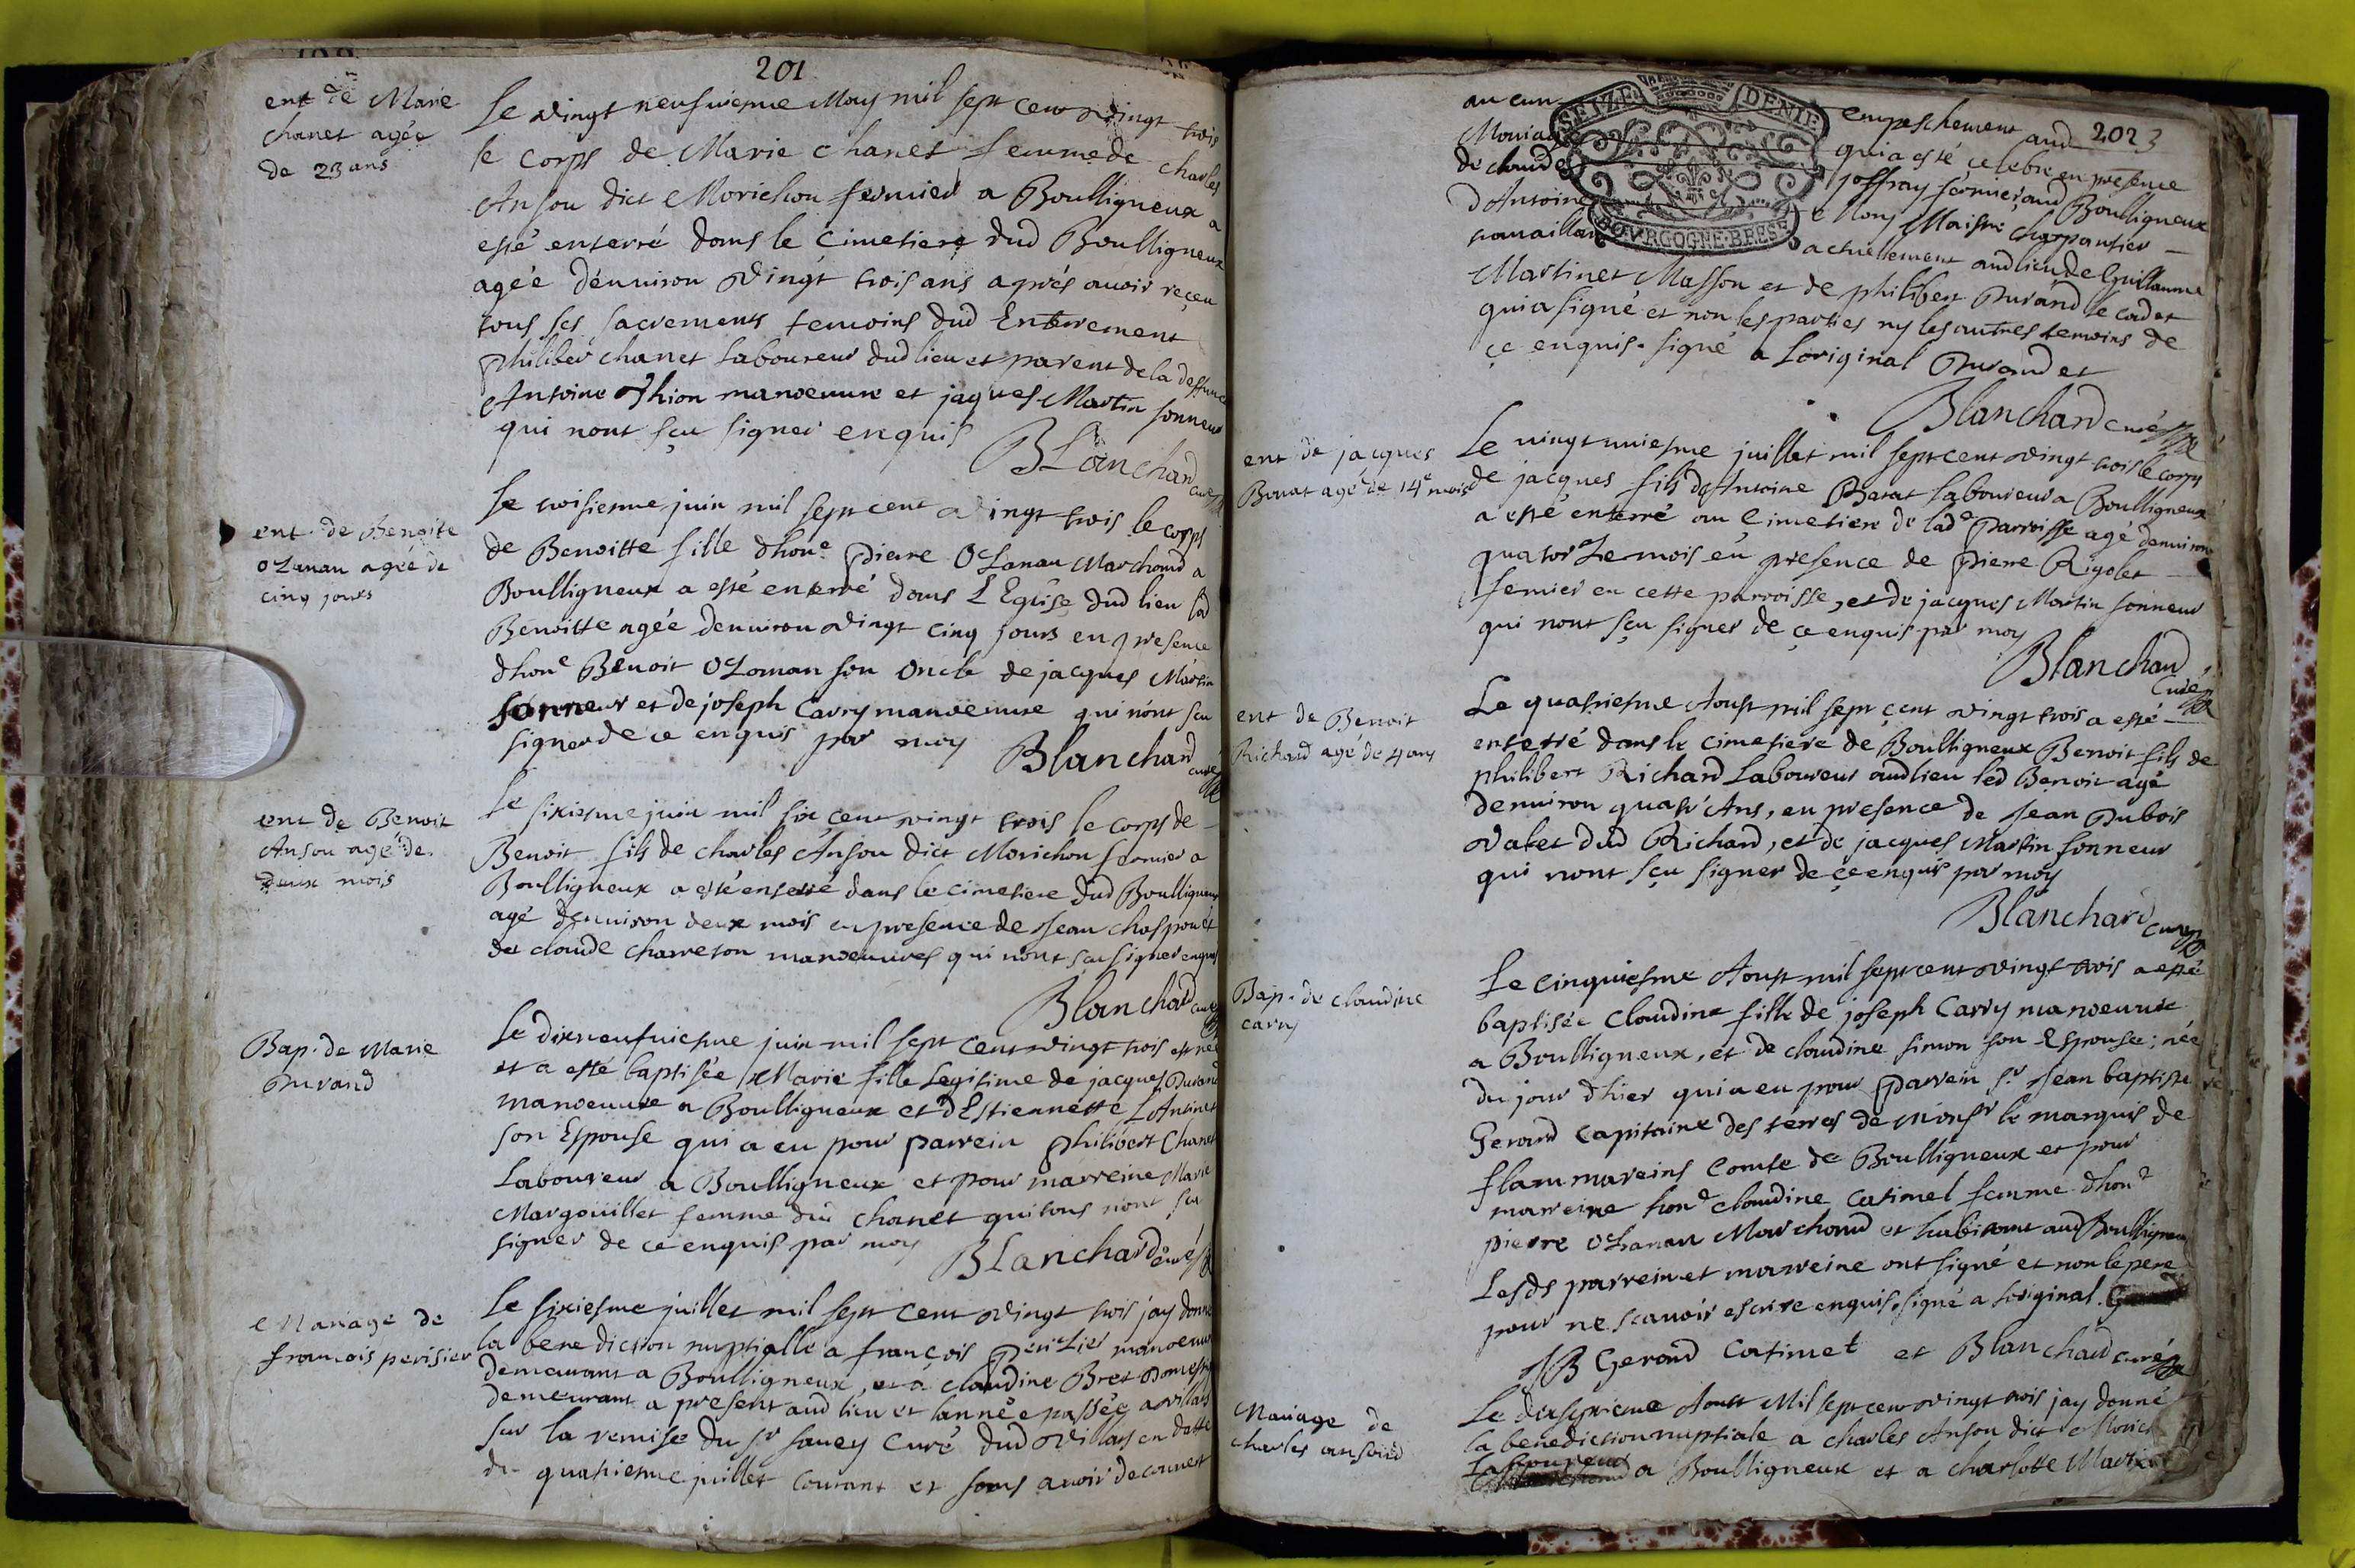 201
ent de Marie
chanet agée
de 23 ans
Le vingt neufuiesme May mil sept cent vingt trois
le corps de Marie chanet femme de charles
Ansou dict Morichon fermier a Boulligneux a
esté enterré dans le cimetiere dud Boulligneux
agée denuiron vingt trois ans aprés auoir reçeu
tous ses sacrements temoins dud Enterrement
Philiber chanet laboureur dud lieu et parent de la deffunte
Antoine Thion manoeuure et jaques Martin sonneur
qui nont sçu signer enquis
Blanchard curé
ent. de Benoite
oLanau agée de
cinq jours
Le troisiesme juin mil sept cent vingt trois le corps
de Benoitte fille dhone Pierre OLanau Marchand a
Boulligneux a esté enterré dans L Eglise dud lieu lad
Benoitte agée denuiron vingt cinq jours en presence
dhone Benoit OLanau son oncle de jacques Martin
sonneur et de joseph Carry manoeuure qui nont sçu
signer de ce enquis par moy
Blanchard curé
ent de Benoit
Ansou agé de
deux mois
Le sixiesme juin mil six cent vingt trois le corps de
Benoit fils de charles Ansou dict Morichon fermier a
Boulligneux a esté enterré dans le cimetiere dud Boulligneux
agé denuiron deux mois en presence de Jean chaspou et
de claude charreton manoeuures qui nont sçu signer enquis
Blanchard curé
Bap. de Marie
Durand
Le dixneufuiesme juin mil sept cent vingt trois est née
et a esté baptisée Marie fille Legitime de jacques Durand
manoeuure a Boulligneux et dEstiennette LAntinet
son Espouse qui a eu pour parrein Philibert Chanet
Laboureur a Boulligneux et pour marreine Marie
Margoüillet femme dud chanet qui tous nont sçu
signer de ce enquis par moy
Blanchard curé
Mariage de
francois perisier
Le sixiesme juillet mil sept cent vingt trois jay donné
la benediction nuptialle a françois Perisier manoeuure
demeurant a Boulligneux, et a claudine Bret Domestique
demeurant a present aud lieu et lannée passée a villars
sur la remise du sr saney Curé dud Villars en datte
du quatriesme juillet courant et sans auoir decouuert
2023
aucun empeschement aud
Mariage qui a esté celebre en presence
de claude joffray fermier aud Boulligneux
dAntoine Mon Maistre charpantier
trauaillant actuellement aud lieu de Guillaume
Martinet Masson et de philibert Durand le cadet
qui a signé et non les parties ny les autres temoins de
ce enquis. signé a Loriginal Durand et
Blanchard curé
ent de jacques
Bouat agé de 14e mois
Le vingt uniesme juillet mil sept cent vingt trois le corps
de jacques fils dAntoine Barat laboureur a Boulligneux
a esté enterré au cimetiere de lade Parroisse agé denuiron
quatorze mois en presence de pierre Rigolet
fermier en cette parroisse, et de jacques Martin sonneur
qui nont sçu signer de çe enquis par moy
Blanchard
curé
ent de Benoit
Richard agé de 4 ans
Le quatriesme Aoust mil sept cent vingt trois a esté
enterré dans le cimetiere de Boulligneux Benoit fils de
philibert Richard Laboureur aud lieu led Benoit agé
denuiron quatr'Ans, en presence de Jean Dubois
valet dud Richard, et de jacques Martin sonneur
qui nont sçu signer de çe enquis par moy
Blanchard curé
Bap. de claudine
cary
Le cinquiesme Aoust mil sept cent vingt trois a esté
baptisée Claudine fille de joseph Carry manoeuure
a Boulligneux, et de claudine simon son Espouse; née
du jour dhier qui a eu pour Parrein sr Jean baptiste
Gerard Capitaine des terres de Monsr le marquis de
flammareins Comte de Boulligneux et pour
marreine hone claudine Catimel femme dhone
pierre oLanau Marchand et habitant aud Boulligneux
Lesds parrein et marreine ont signé et non le pere
pour ne scauoir escrire enquis. signé a loriginal
JB Gerard Catimet et Blanchard curé
Mariage de
charles ansoud
Le dixseptieme Aoust Mil sept cent vingt trois jay donné
la benediction nuptiale a charles Ansou dict Morich
Laboureur a Boulligneux et a charlotte Martin